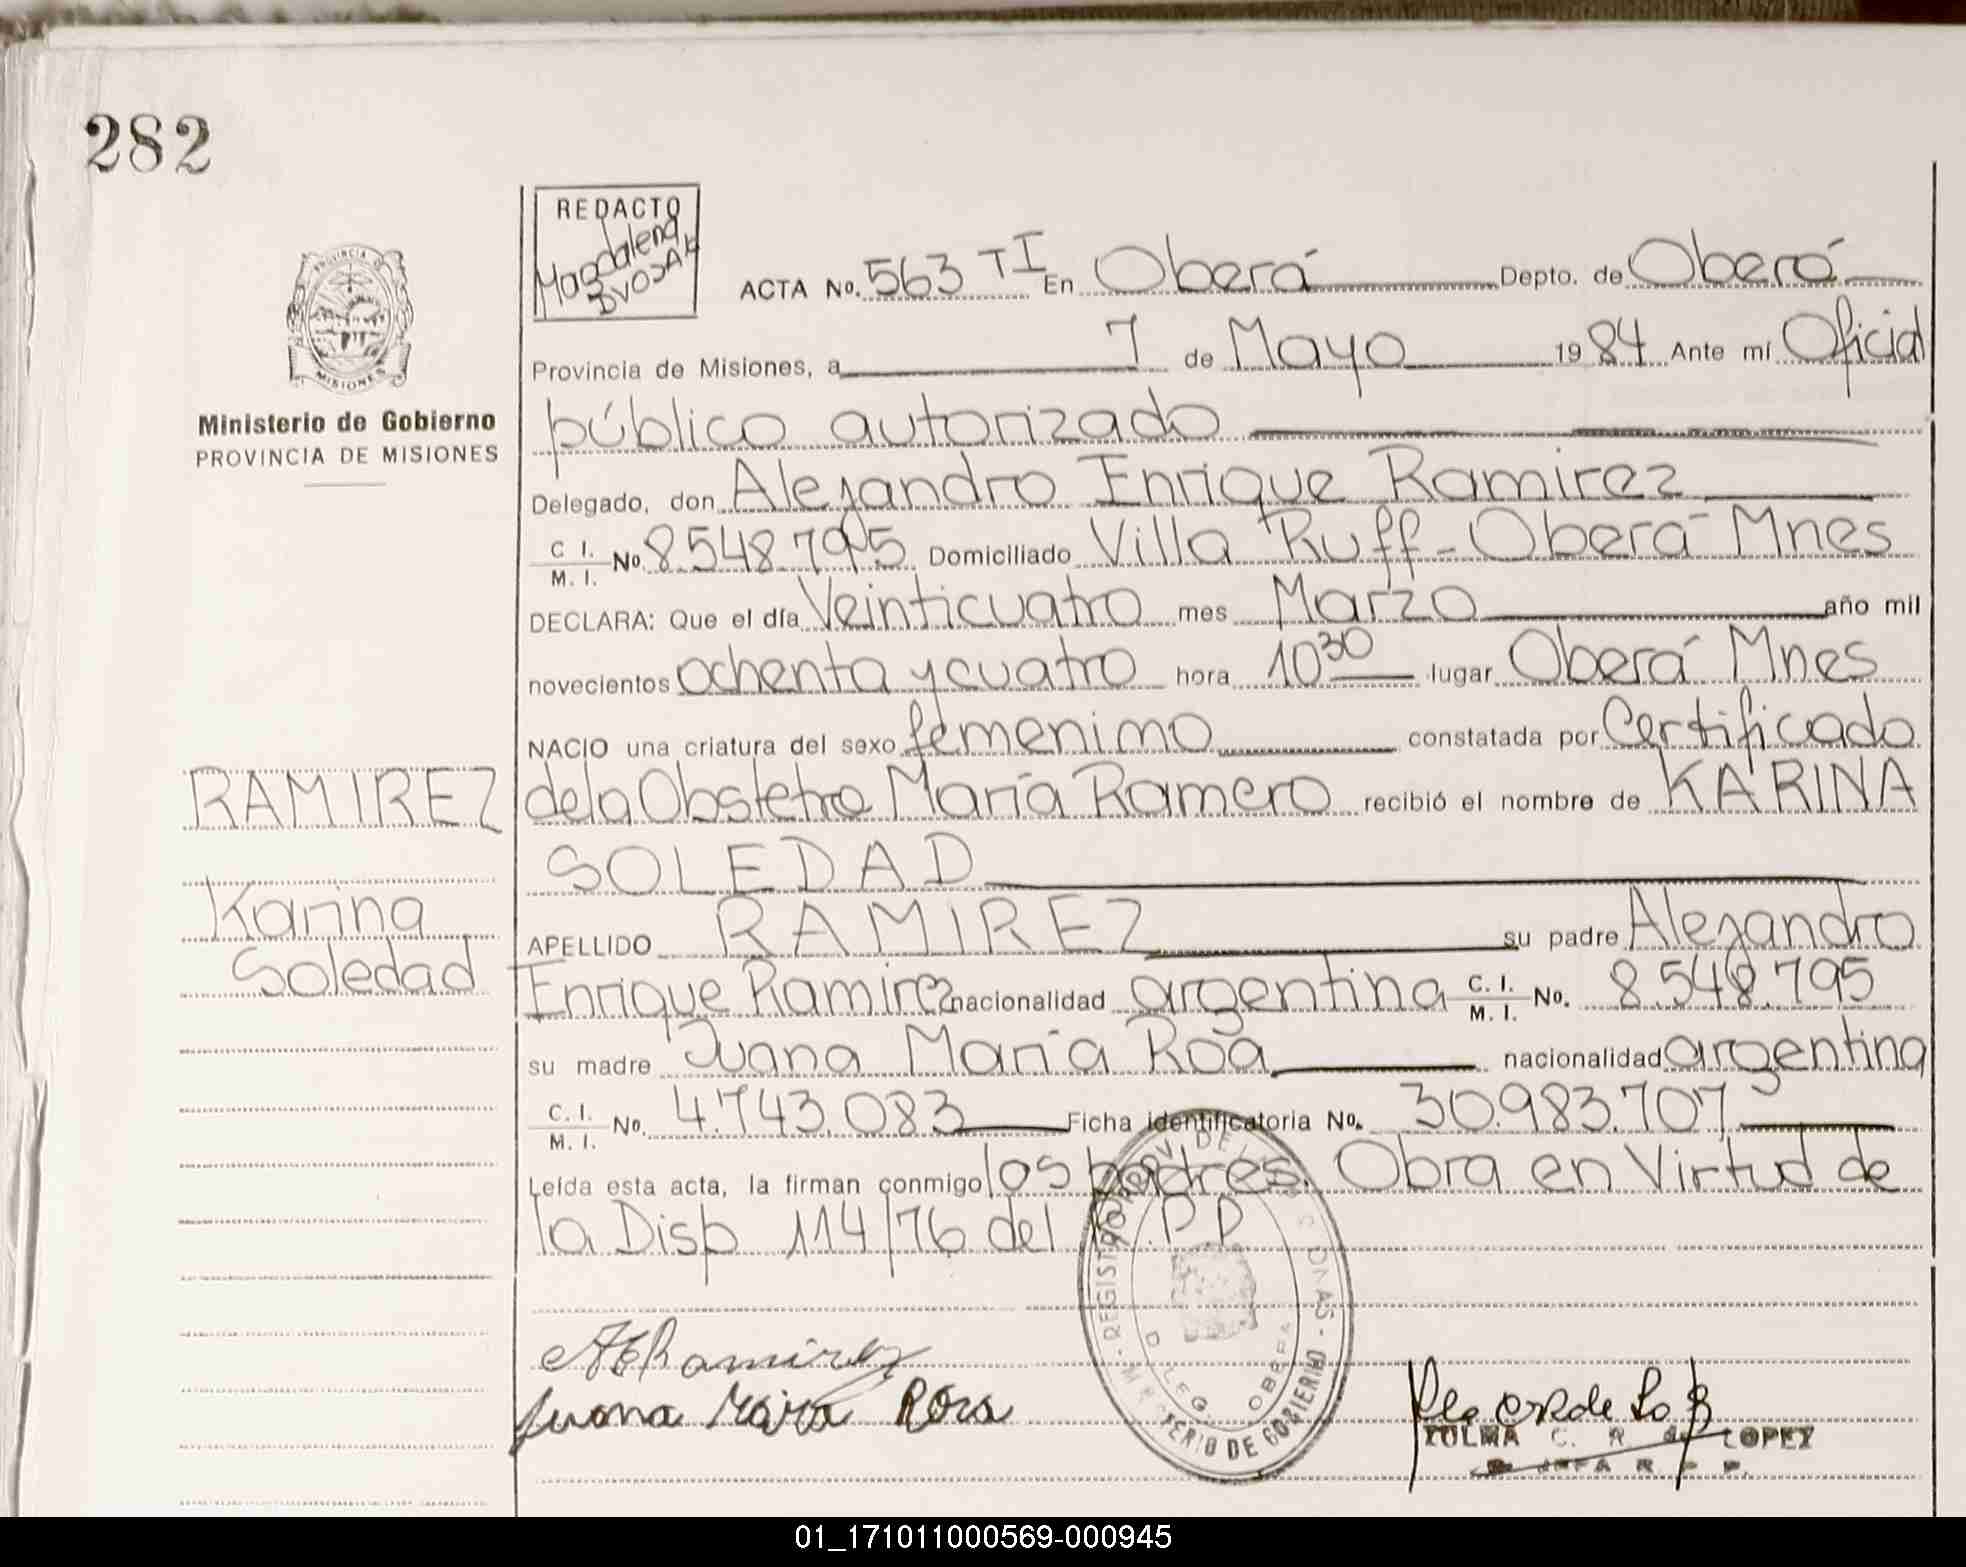 282
REDACTO
Magdalena
DVOSAK
ACTA No. 563 TI En Oberá Depto. de Oberá
Provincia de Misiones, a 7 de Mayo 1984 Ante mí Oficial
público autorizado
Delegado, don Alejandro Enrique Ramirez
C. I. / M. I. No. 8.548.795 Domiciliado Villa Ruff - Oberá Mnes
DECLARA: Que el día Veinticuatro mes Marzo año mil
novecientos ochenta y cuatro hora 10 30 lugar Oberá Mnes
NACIO una criatura del sexo femenimo constatada por Certificado
de la Obstetra María Ramero recibió el nombre de KARINA
SOLEDAD
APELLIDO RAMIREZ su padre Alejandro
Enrique Ramirez nacionalidad argentina C. I. / M. I. No. 8.548.795
su madre Juana María Roa nacionalidad argentina
C. I. / M. I. No. 4.743.083 Ficha identificatoria No. 30.983.707
Leída esta acta, la firman conmigo los padres. Obra en Virtud de
la Disp 114/76 del R.P.P
PROVINCIA D MISIONES
Ministerio de Gobierno
PROVINCIA DE MISIONES
RAMIREZ
Karina
Soledad
AERamirez
Juana Maira Roa
REGISTRO DE MINISTERIO DE GOBIERNO
DELEG. OBERA
ZULMA C. R. LOPEZ
JEFA R P P.
01_171011000569-000945